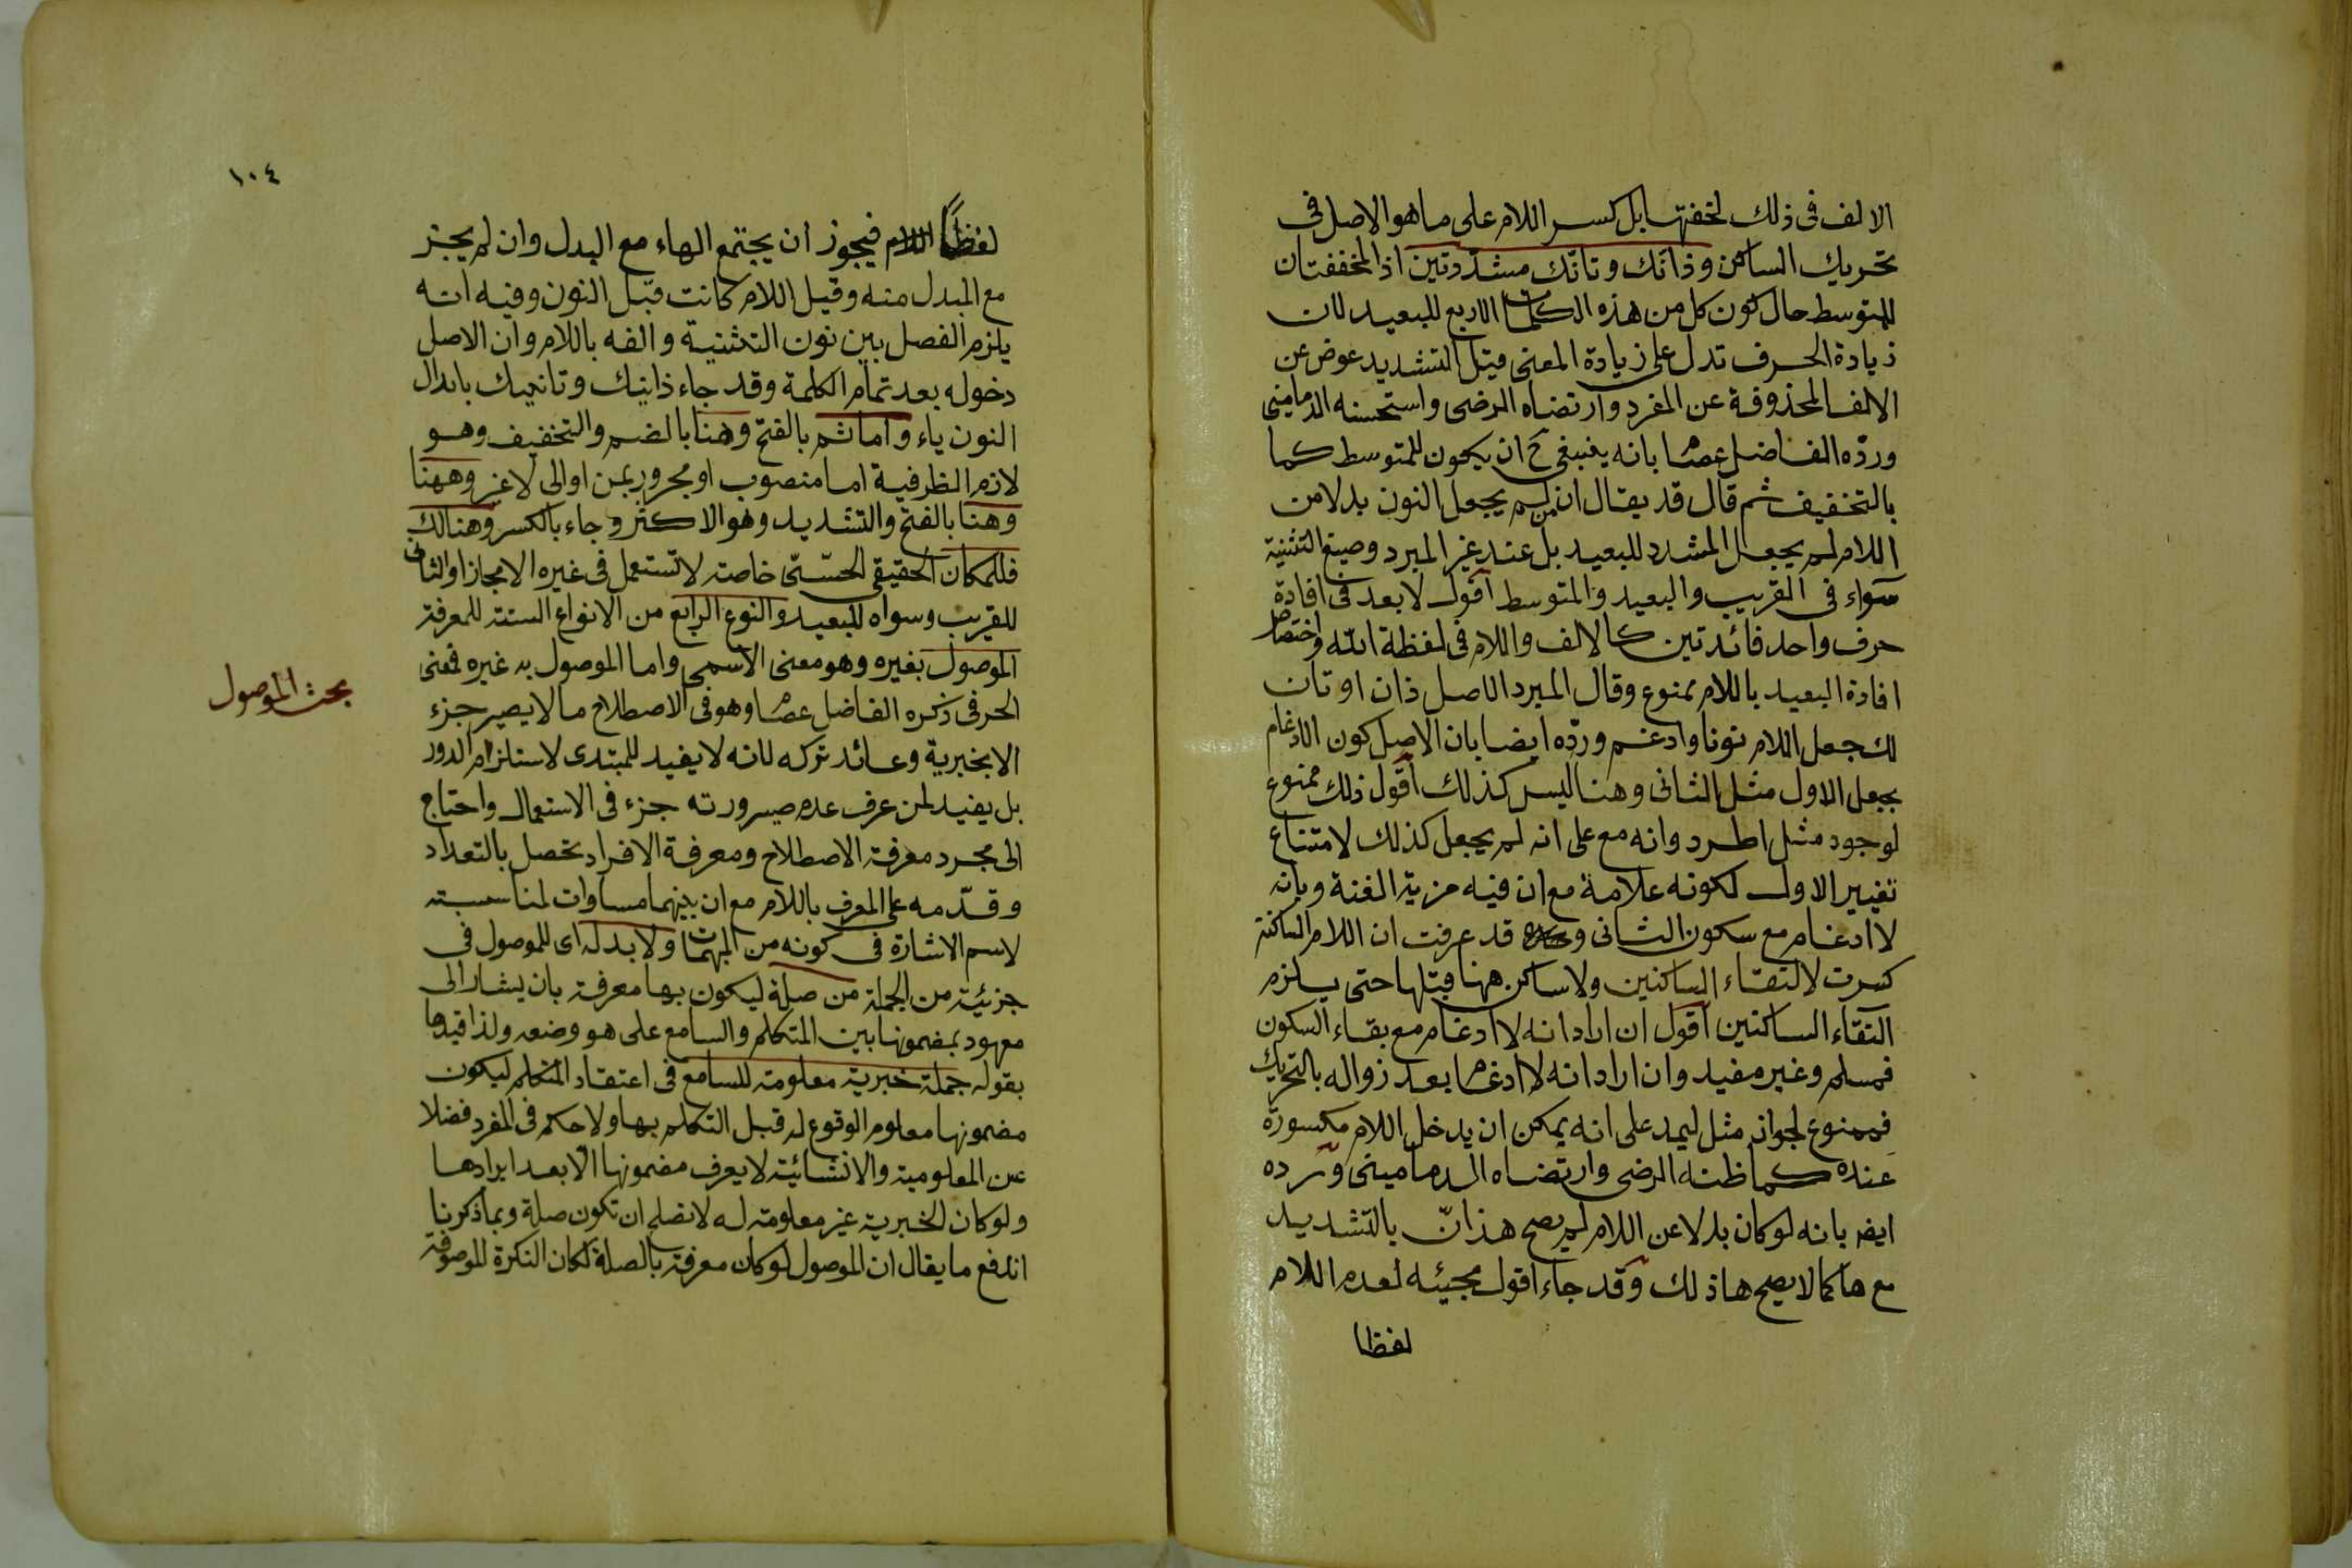 الالف فى ذلك لخفتها بل كسر اللام على ما هو الاصل فى
تحريك الساكن وذانّك وتانّك مشدّدتين اذ المخففتان
للمتوسط حال كون كل من هذه الكلمات الاربع للبعيد لان
زيادة الحرف تدل على زيادة المعنى قيل التشديد عوض عن
الالف المحذوفة عن المفرد وارتضاه الرضى واستحسنه الدمامينى
وردّه الفاضل عصام بانه ينبغى ح ان يكون للمتوسط كما
بالتخفيف ثم قال قد يقال ان من لم يجعل النون بدلا من
اللام لم يجعل المشدد للبعيد بل عند غير المبرد وصيغ التثنية
سواء فى القريب والبعيد والمتوسط اقول لا بعد فى افادة
حرف واحد فائدتين كالالف واللام فى لفظة الله واختصاص
افادة البعيد باللام ممنوع وقال المبرد الاصل ذان او تان
لك جعل اللام نونا وادغم وردّه ايضا بان الاصل كون الادغام
بجعل الاول مثل الثانى وهنا ليس كذلك اقول ذلك ممنوع
لوجود مثل اطرد وانه مع على انه لم يجعل كذلك لامتناع
تغيير الاول لكونه علامة مع ان فيه مزية الغنة وبانه
لا ادغام مع سكون الثانى وقد عرفت ان اللام الساكنة
كسرت لالتقاء الساكنين ولا ساكن ههنا قبلها حتى يلزم
التقاء الساكنين اقول ان اراد انه لا ادغام مع بقاء السكون
فمسلم وغير مفيد وان اراد انه لا ادغام بعد زواله بالتحريك
فممنوع لجواز مثل ليمد على انه يمكن ان يدخل اللام مكسورة
عنده كما ظنه الرضى وارتضاه الدمامينى وتردّه
ايضا بانه لو كان بدلا عن اللام لم يصح هذانّ بالتشديد
مع ها كما لا يصح هاذلك وقد جاء اقول مجيئه لعدم اللام
لفظا
١٠٤
لفظًا فيجوز ان يجتمع الهاء مع البدل وان لم يجز
مع المبدل منه وقيل اللام كانت قبل النون وفيه انه
يلزم الفصل بين نون التثنية والفه باللام وان الاصل
دخوله بعد تمام الكلمة وقد جاء ذانيك وتانيك بابدال
النون ياء واما ثم بالفتح وهنا بالضم والتخفيف وهو
لازم الظرفية اما منصوب او مجرور بمن او الى لا غير وههنا
وهنا بالفتح والتشديد وهو الاكثر وجاء بالكسر وهنالك
فللمكان الحقيقى الحسّىّ خاصة لا تستعمل فى غيره الا مجازا والثانى
للقريب وسواه للبعيد والنوع الرابع من الانواع الستة للمعرفة
الموصول بغيره وهو معنى الاسمى واما الموصول به غيره فمعنى
الحرفى ذكره الفاضل عصام وهو فى الاصطلاح ما لا يصير جزء
الا بخبرية وعائد تركه لانه لا يفيد للمبتدى لاستلزام الدور
بل يفيد لمن عرف عدم صيرورته جزء فى الاستعمال واحتاج
الى مجرد معرفة الاصطلاح ومعرفة الافراد تحصل بالتعداد
وقدّمه على المعرف باللام مع ان بينهما مساوات لمناسبته
لاسم الاشارة فى كونه من المبهمات ولا بد له اى للموصول فى
جزئية من الجملة من صلة ليكون بها معرفة بان يشار الى
معهود بمضمونها بين المتكلم والسامع على هو وضعه ولذا قيدها
بقوله جملة خبرية معلومة للسامع فى اعتقاد المتكلم ليكون
مضمونها معلوم الوقوع له قبل التكلم بها ولا حكم فى المفرد فضلا
عن المعلومية والانشائية لا يعرف مضمونها الا بعد ايرادها
ولو كان الخبرية غير معلومة له لا تصلح ان تكون صلة وبما ذكرنا
اندفع ما يقال ان الموصول لو كان معرفة بالصلة لكان النكرة الموصوفة
بحث الموصول